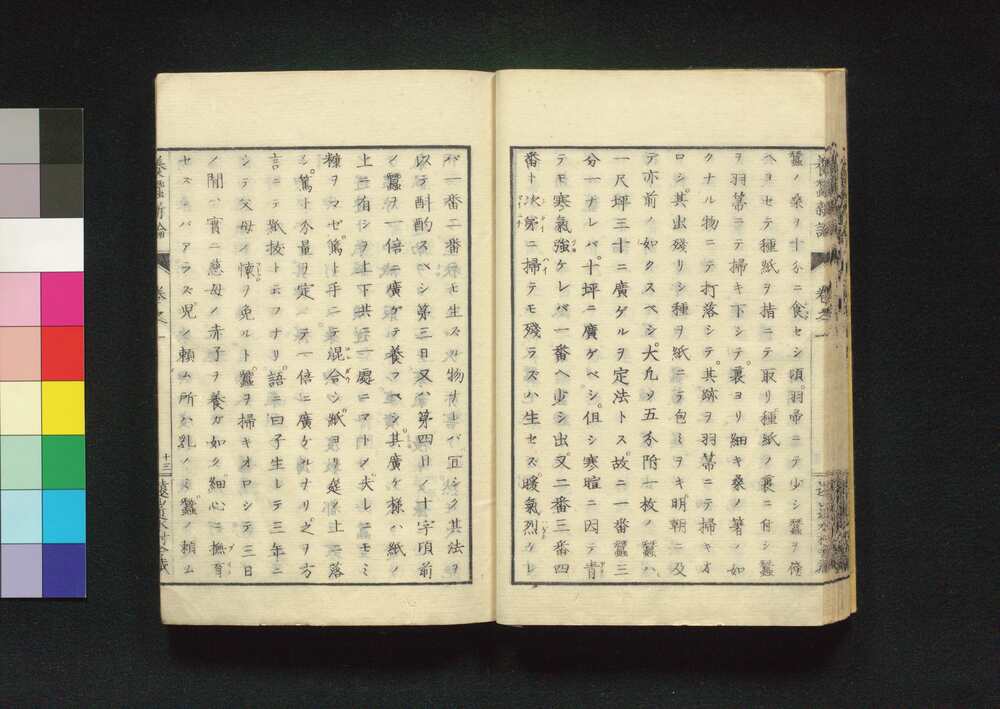 蠶ノ桑ヲ十分ニ食セシ頃羽帚ニテ少シ蠶ヲ片
ヘヨセテ種紙ヲ措ニテ取リ種紙ノ裏ニ付シ蠶
ヲ羽箒ニテ掃キ下シテ裏ヨリ細キ桑ノ箸ノ如
クナル物ニテ打落シテ其跡ヲ羽箒ニテ掃キオ
ロシ其出殘リシ種ヲ紙ニテ包ミヲキ明朝ニ及
テ亦前ノ如クスベシ大凡ソ五分附一枚ノ蠶ハ
一尺坪三十ニ廣ゲルヲ定法トス故ニ一番蠶三
分一ナレバ十坪ニ廣ゲベシ但シ寒暄ニ因テ青
テモ寒氣強ケレバ一番ヘ少シ出又二番三番四
番ト次第ニ掃テモ殘ラズハ生セズ暖氣烈ケレ
養蠶新論
卷之一
バ一番二番
モ生ズル物ナレバ宜シク其法ヲ
以テ斟酌スベシ第三日又ハ第四日ノ十字頃前
ノ蠶ヲ一倍ニ廣ゲテ養フベシ其廣ゲ様ハ紙ノ
上ニ有シヲ上下共ニ一處ニマトメ
糠ヲマゼ篤ト手ニテ混合シ紙ヨリ
シ篤ト分量ヲ定メテ一倍ニ廣ゲルナリ之ヲ方
言ニテ紙拔トエフナリ語ニ曰子生レテ三年ニ
シテ父母ノ懷ヲ免ルト蠶ヲ掃キオロシテ三日
ノ間ハ實ニ慈母ノ赤子ヲ養ガ如ク細心ニ撫育
セズンバアラズ児ノ頼ム所ハ乳ノミ蠶ノ頼ム
養蠶新論
卷之一
十三